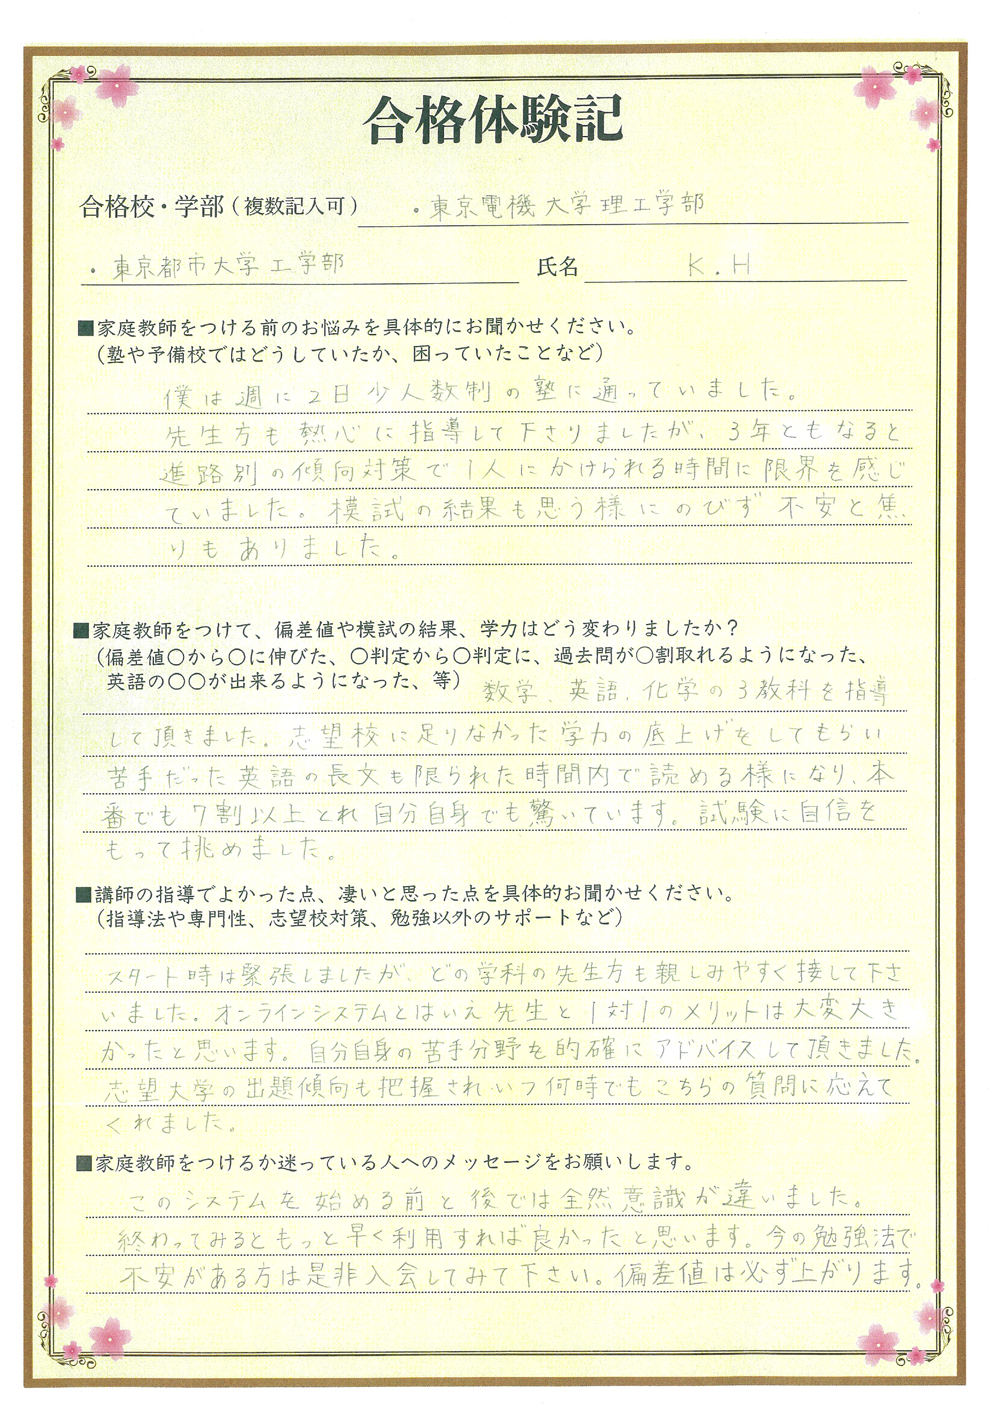 合格体験記
合格校・学部(複数記入可) ・東京電機大学理工学部
・東京都市大学 工学部 氏名 K.H
■家庭教師をつける前のお悩みを具体的にお聞かせください。
(塾や予備校ではどうしていたか、困っていたことなど)
僕は週に2日少人数制の塾に通っていました。
先生方も熱心に指導して下さりましたが、3年ともなると
進路別の傾向対策で1人にかけられる時間に限界を感じ
ていました。模試の結果も思う様にのびず不安と焦
りもありました。
■家庭教師をつけて、偏差値や模試の結果、学力はどう変わりましたか?
(偏差値〇から〇に伸びた、〇判定から〇判定に、過去問が〇割取れるようになった、
英語の〇〇が出来るようになった、等) 数学、英語、化学の3教科を指導
して頂きました。志望校に足りなかった学力の底上げをしてもらい
苦手だった英語の長文も限られた時間内で読める様になり、本
番でも7割以上とれ自分自身でも驚いています。試験に自信を
もって挑めました。
■講師の指導でよかった点、凄いと思った点を具体的お聞かせください。
(指導法や専門性、志望校対策、勉強以外のサポートなど)
スタート時は緊張しましたが、どの学科の先生方も親しみやすく接して下さ
いました。オンラインシステムとはいえ先生と1対1のメリットは大変大き
かったと思います。自分自身の苦手分野を的確にアドバイスして頂きました。
志望大学の出題傾向も把握されいつ何時でもこちらの質問に応えて
くれました。
■家庭教師をつけるか迷っている人へのメッセージをお願いします。
このシステムを始める前と後では全然意識が違いました。
終わってみるともっと早く利用すれば良かったと思います。今の勉強法で
不安がある方は是非入会してみて下さい。偏差値は必ず上がります。